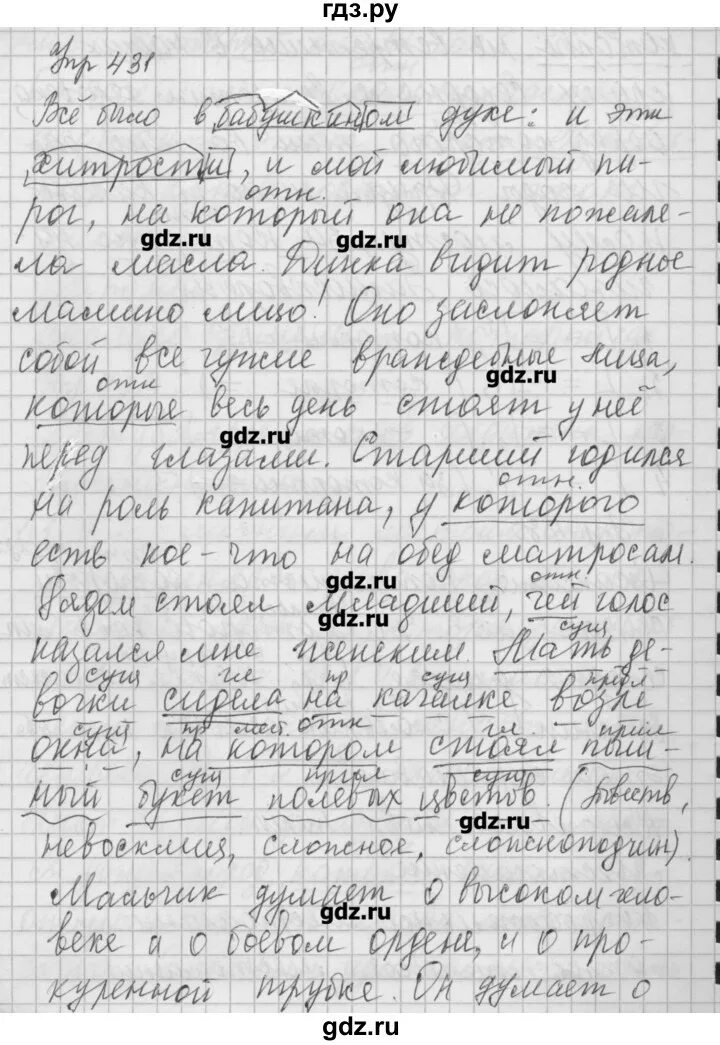 гдз.ру
Упр 431
Всё было в бабушкином духе: и эти
хитрости, и мой любимый пи-
отн.
рог, на который она не пожале-
gdz.ru gdz.ru
ла масла. Динка видит родное
мамино лицо! Оно заслоняет
собой все чужие враждебные лица,
gdz.ru
отн
которые весь день стоят у неё
gdz.ru
перед глазами. Старший годился
отн.
на роль капитана, у которого
есть кое-что на обед матросам.
gdz.ru
отн.
Рядом стоял Младший, чей голос
gdz.ru
сущ
казался мне женским. Мать де-
сущ гл пр сущ предл
вочки сидела на качалке возле
сущ пр мест. отн гл. прил
окна, на котором стоял пыш-
сущ прил сущ
ный букет полевых цветов. (Повеств,
gdz.ru
невосклиц, сложное, сложноподчин).
Мальчик думает о высоком чело-
gdz.ru
веке а о боевом ордене, и о про-
куренной трубке. Он думает о
gdz.ru